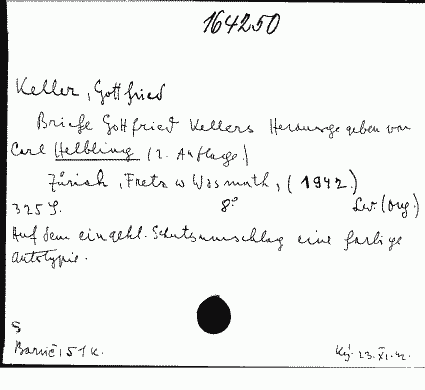 164250
Keller, Gottfried
Briefe Gottfried Kellers Herausgegeben von
Carl Helbling (2. Auflage.)
Zürich, Fretz & Wasmuth, (1942.)
325 S. 8° Lw. (Org.)
Auf dem eingekl. Schutzumschlag eine farbige
Autotypie.
S
51 K. 23.XI.42.